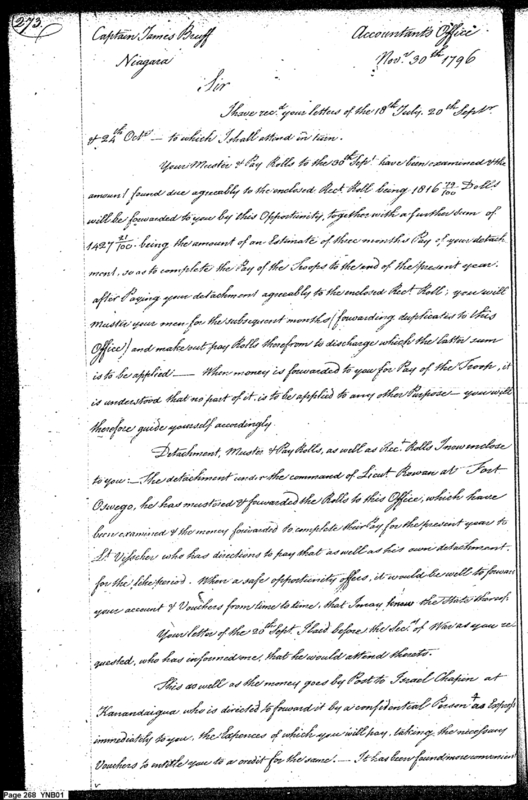 273.
Captain James Bruff Accountant's Office
Niagara Novr. 30th 1796
Sir
I have recd. your letters of the 18th July, 20th Septr.
& 24th Octr. — to which I shall attend in turn.
Your Muster & Pay Rolls to the 30th Sept. have been examined & the
amount found due agreeably to the enclosed Rect. Roll being 1816 79/100 Dolls
will be forwarded to you by this Opportunity, together with a further sum of
1427 21/100 being the amount of an Estimate of three months Pay of your detach
ment, so as to complete the Pay of the Troops to the end of the present year.
after Paying your detachment agreeably to the enclosed Rect. Roll; you will
muster your men for the subsequent months (forwarding duplicates to this
Office) and make out pay Rolls therefrom to discharge which the latter sum
is to be applied. — When money is forwarded to you for Pay of the Troops, it
is understood that no part of it, is to be applied to any other Purpose — you will
therefore guide yourself accordingly.
Detachment, Muster & Pay Rolls, as well as Rect. Rolls I now enclose
to you: — The detachment under the command of Lieut. Rowan at Fort
Oswego, he has mustered & forwarded the Rolls to this Office, which have
been examined & the money forwarded to complete their Pay for the present year to
Lt. Visscher who has directions to pay that as well as his own detachment.
for the like period. When a safe opportunity offers, it would be well to forward
your account & Vouchers from time to time, that I may know the State thereof.
Your letter of the 20th Sept. I laid before the Secy. of War as you re-
quested, who has informed me, that he would attend thereto.
This as well as the money goes by Post to Israel Chapin at
Kanandaigua who is directed to forward it by a confidential Person & as Express
immediately to you, the Expences of which you will pay, taking the necessary
Vouchers to entitle you to a credit for the same. — It has been found more convenient
Page 268 YNB01